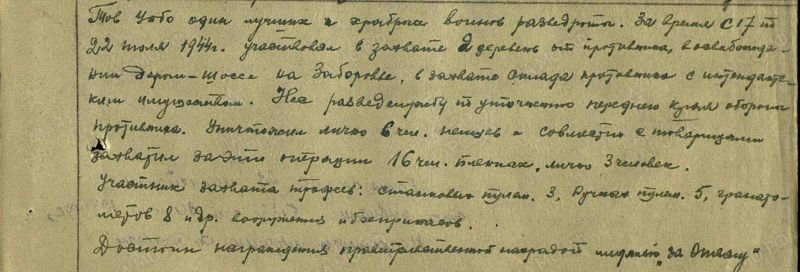 Тов Учво один лучших и храбрых воинов разведроты. За время с 17 по
22 июля 1944г. участвовал в захвате 2 деревень от противника, в освобожде-
нии дороги-шоссе на Заборовье, в захвате склада противника с интендантс-
ким имуществом. Нес разведслужбу по уточнению переднего края обороны
противника. Уничтожил лично 6 чел. немцев и совместно с товарищами
захватил за эти операции 16 чел. пленных, лично 3 человек.
Участник захвата трофеев: станковых пулем. 3, ручных пулем. 5, гранато-
метов 8 и др. вооружения и боеприпасов.
Достоин награждения правительственной наградой медалью "за Отвагу"